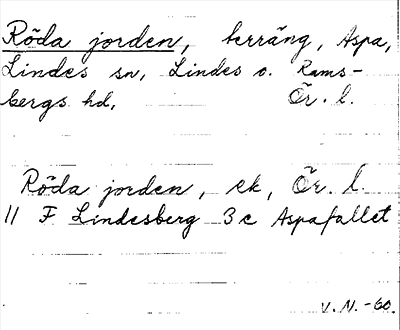 Röda jorden, terräng, Aspa,
Lindes sn, Lindes o. Rams-
bergs hd, Ör. l.
Röda jorden, ek, Ör. l.
11 F Lindesberg 3c Aspafallet
V. N. -60.